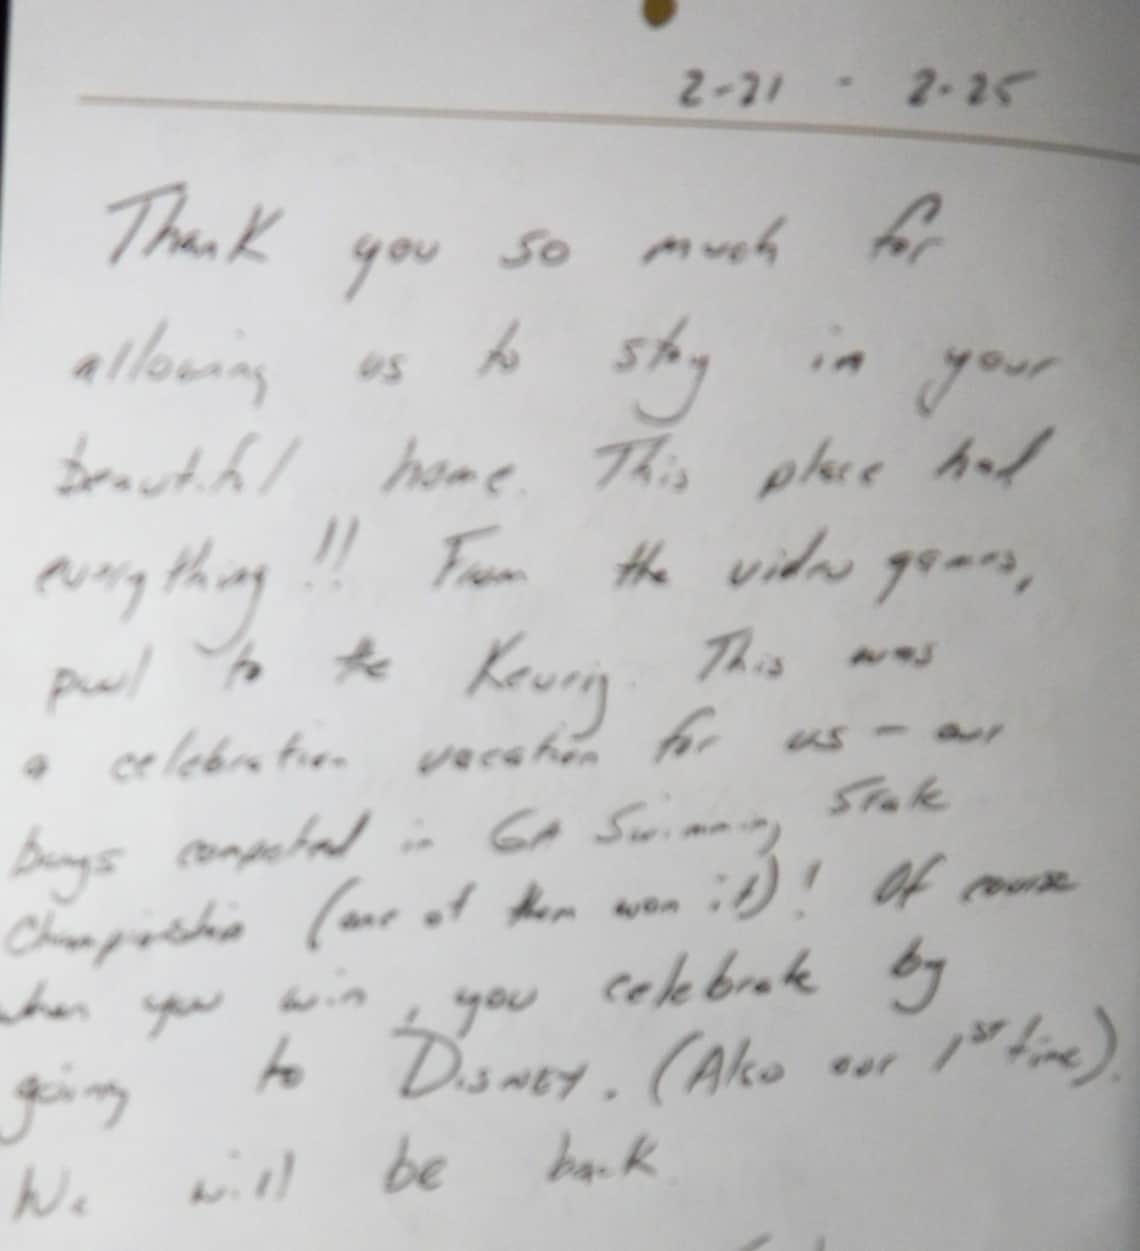 2-21 - 2-25
Thank you so much for
allowing us to stay in your
beautiful home. This place had
everything!! From the video games,
pool to the Keurig. This was
a celebration vacation for us - our
boys competed in GA Swimming State
Championship (one of them won it)! Of course
when you win, you celebrate by
going to Disney. (Also our 1st time).
We will be back